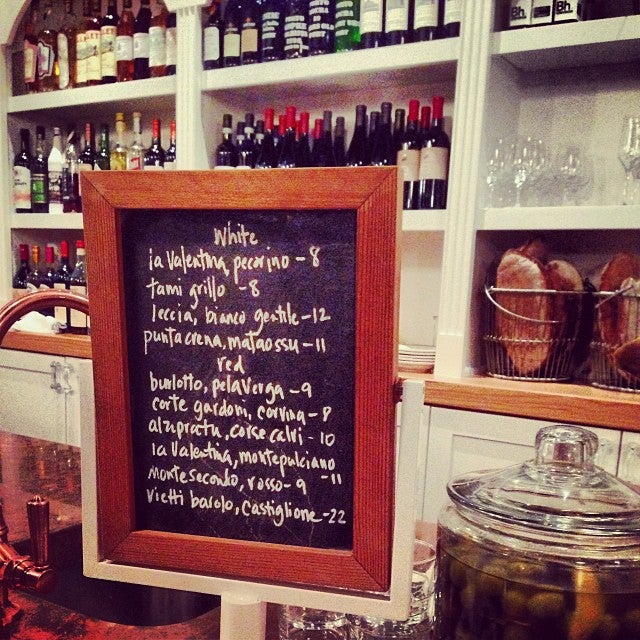 White
la Valentina, pecorino - 8
tami grillo - 8
leccia, bianco gentile - 12
punta crena, mataossu - 11
red
burlotto, pelaverga - 9
corte gardoni, corvina - 8
alzipratu, corse calvi - 10
la Valentina, montepulciano - 11
montesecondo, rosso - 9
vietti barolo, Castiglione - 22
Bh. Bh. Bh.